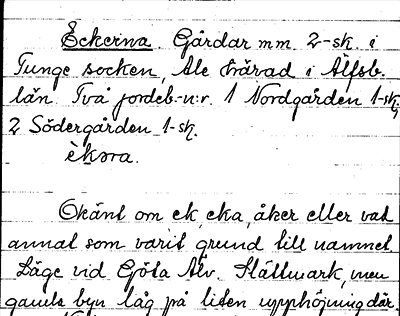 Eckerna. Gårdar mm. 2-sk. i
Tunge socken, Ale härad i Älfsb.
län. Två jordeb.-n:r. 1 Nordgården 1-sk,
2 Södergården 1-sk.
èkṣra.
Okänt om ek, eka, åker eller vad
annat som varit grund till namnet
Läge vid Göta Älv. Slättmark, men
gamla byn låg på liten upphöjning där.